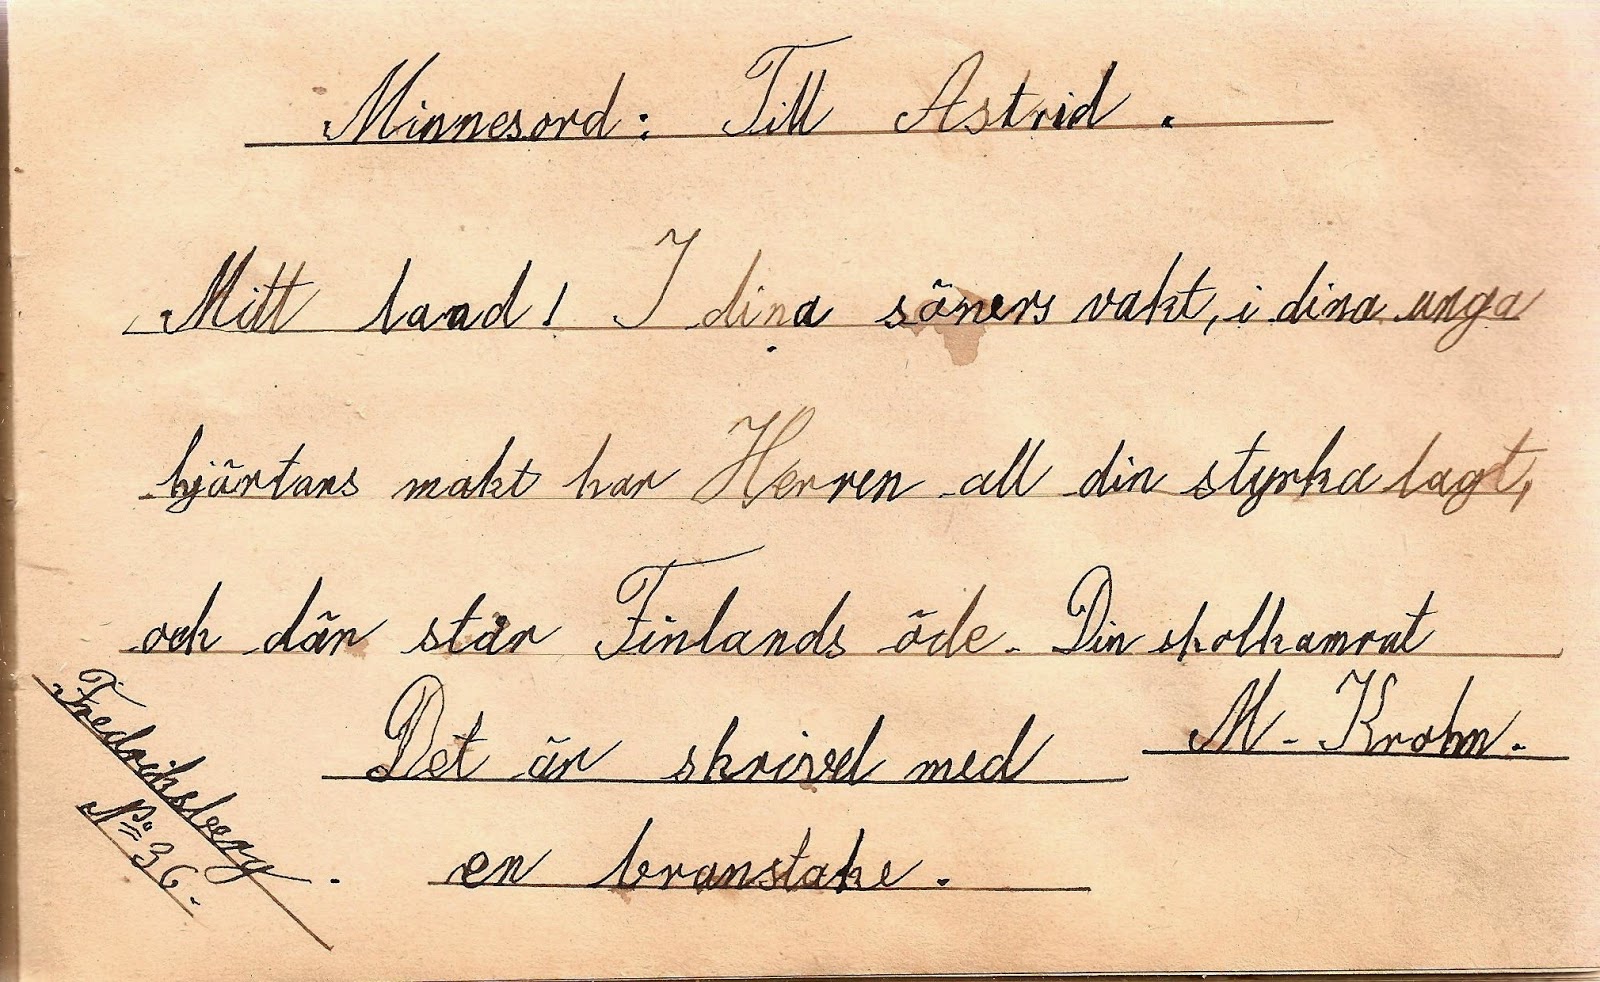 Minnesord: Till Astrid.
Mitt land! I dina söners vakt, i dina unga
hjärtans makt har Herren all din styrka lagt,
och där står Finlands öde. Din skolkamrat
M. Krohn.
Det är skrivel med
en branstake.
Fredriksberg
No 36.